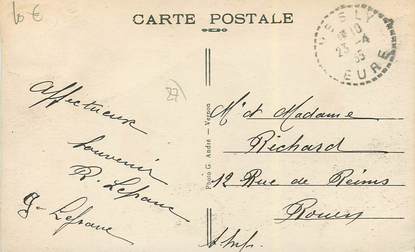 10 €
CARTE POSTALE
SLY
10
23 - 4
35
EURE
27
Affectueux
souvenir
R. Lefranc
G. Lefranc
Photo G. André - Vernon
Mr et Madame
Richard
12 Rue de Reims
Rouen
S. Inf.